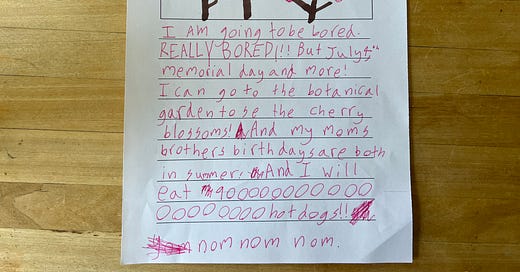 I AM going to be bored.
REALLY BORED!!! But July 4th
memorial day and more!
I can go to the botanical
garden to se the cherry
blossoms! And my moms
brothers birthdays are both
in summer. And I will
eat 90000000000000
00000000 hot dogs!!
nom nom nom.